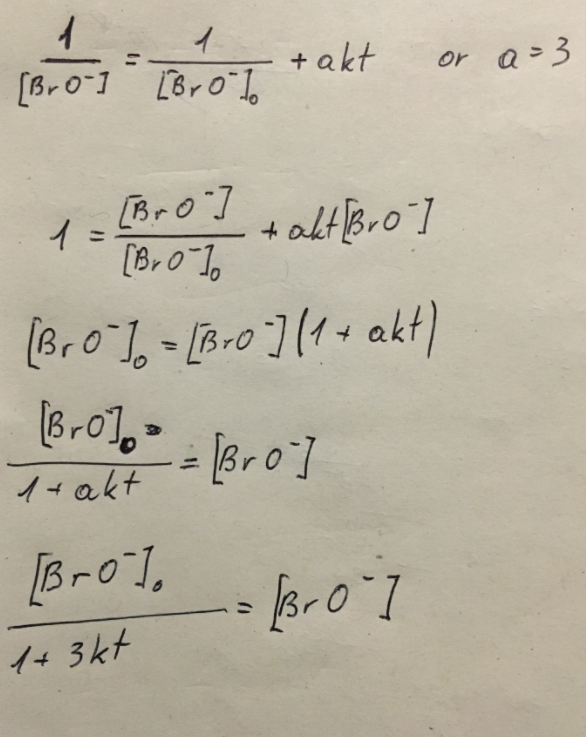 1/[BrO⁻] = 1/[BrO⁻]₀ + akt or a = 3
1 = [BrO⁻]/[BrO⁻]₀ + akt[BrO⁻]
[BrO⁻]₀ = [BrO⁻](1 + akt)
[BrO⁻]₀/(1 + akt) = [BrO⁻]
[BrO⁻]₀/(1 + 3kt) = [BrO⁻]